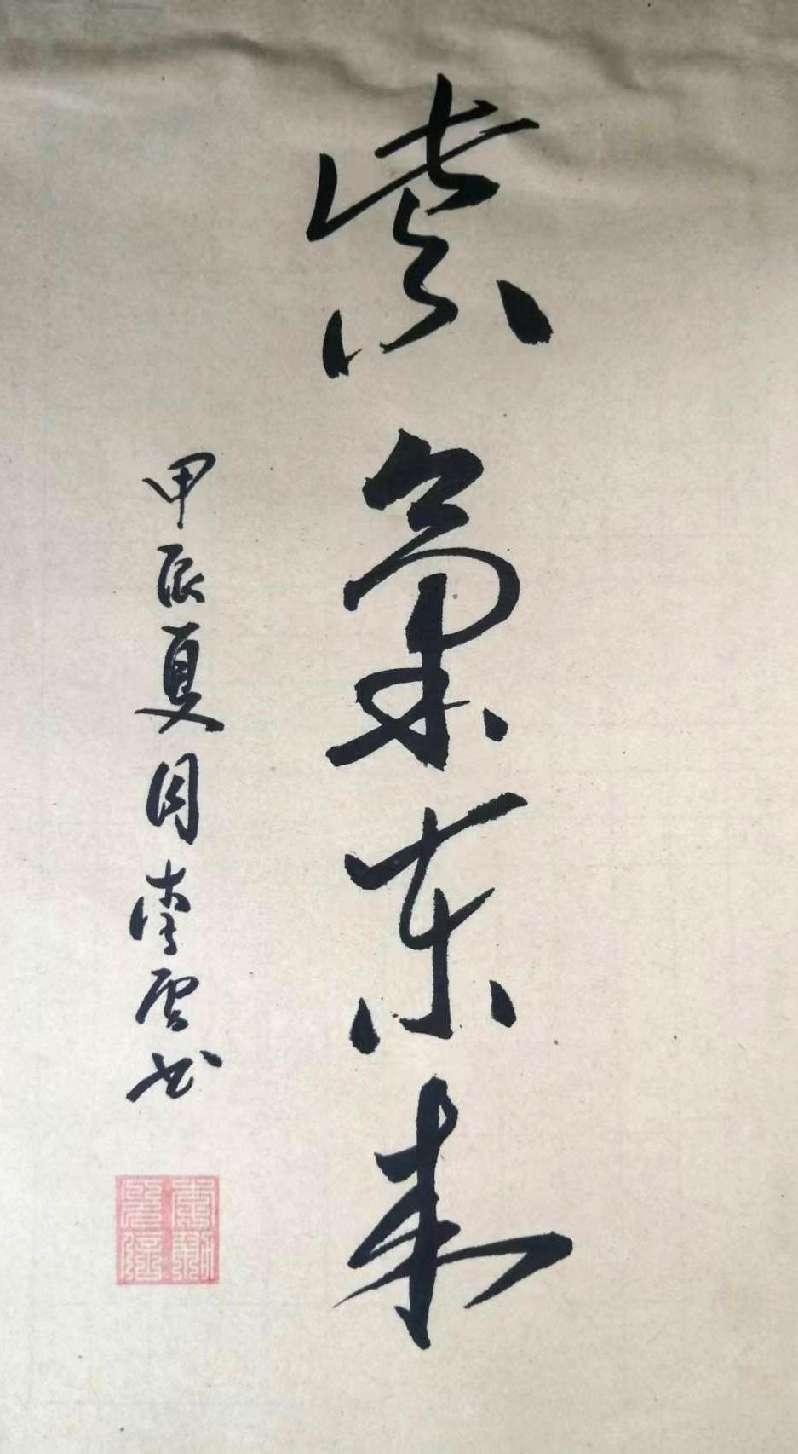 紫氣东来
甲辰夏月李雲书